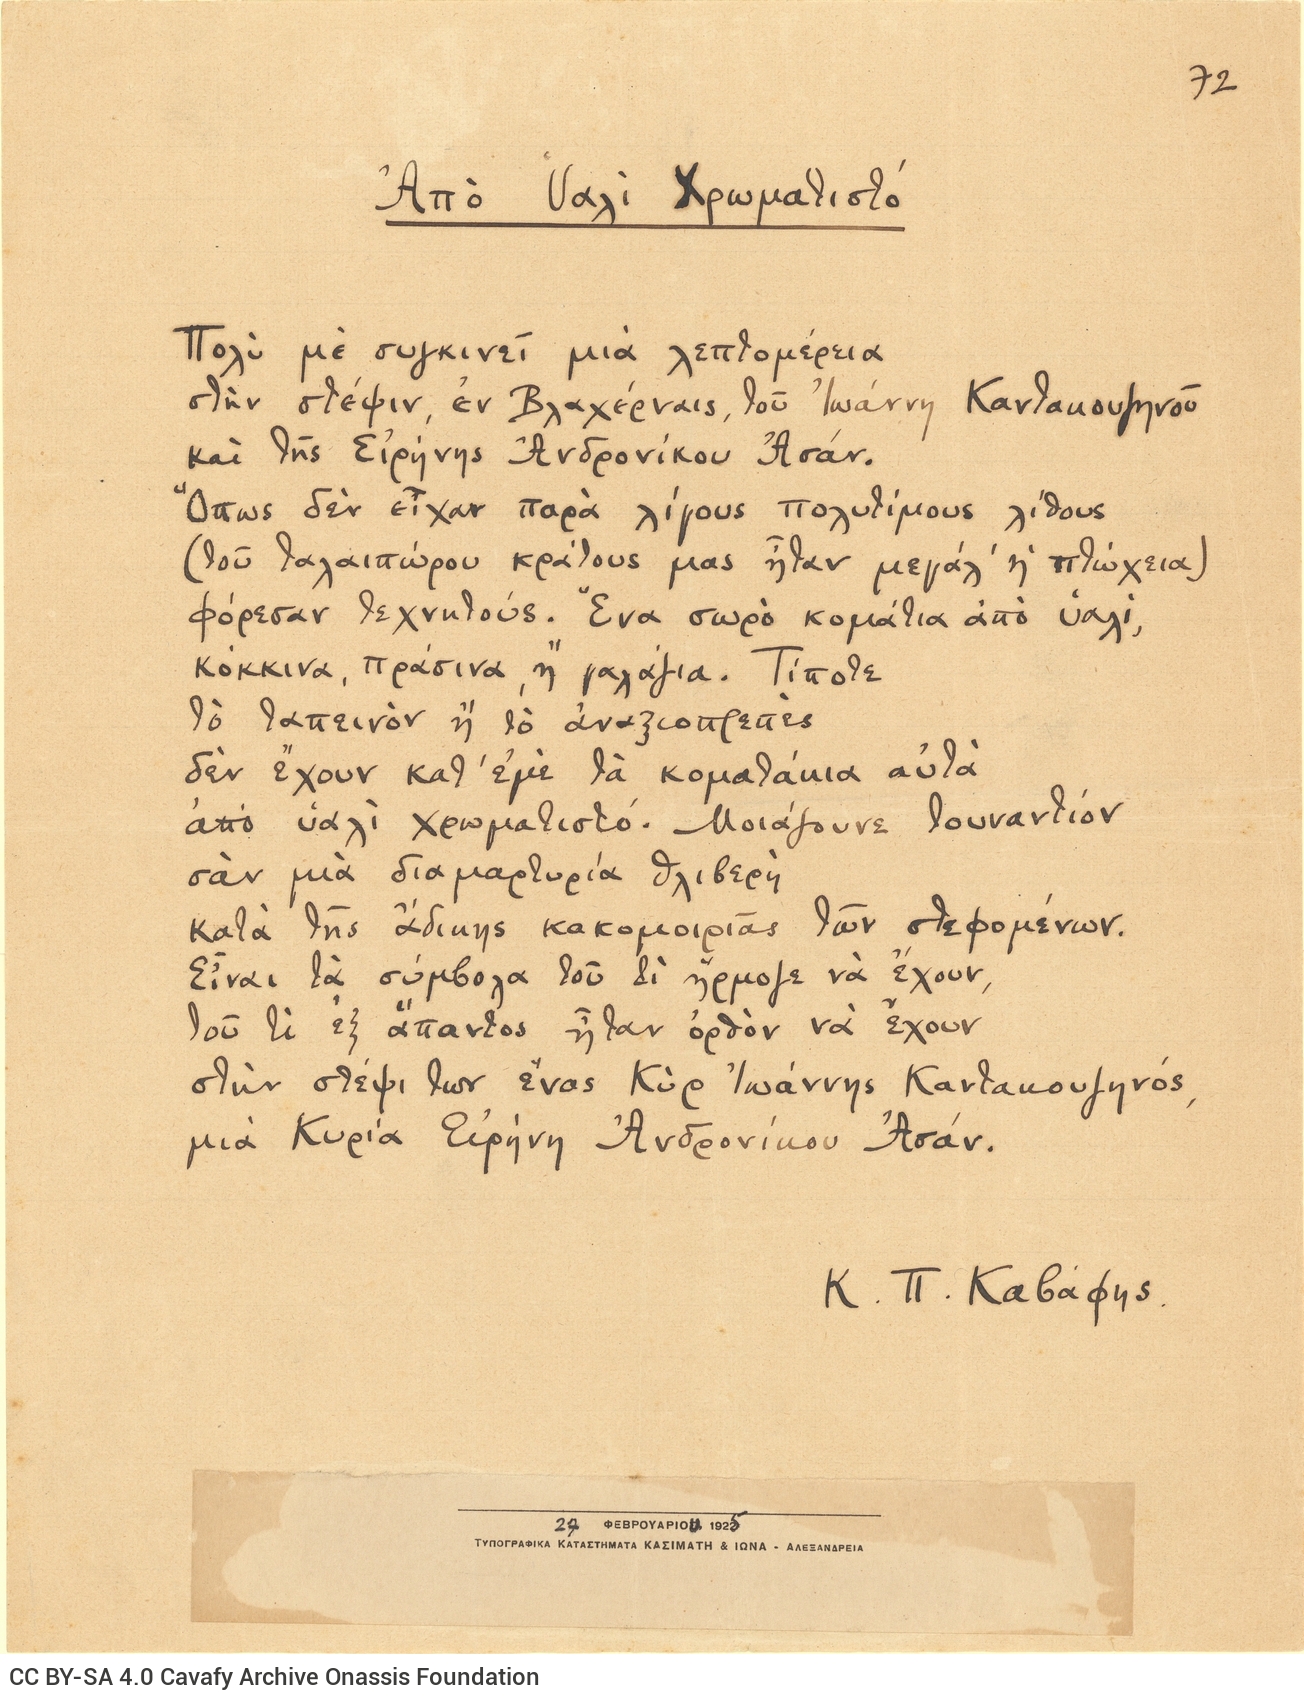 72
Ἀπὸ Ὑαλὶ Χρωματιστό
Πολὺ μὲ συγκινεῖ μιὰ λεπτομέρεια
στὴν στέψιν, ἐν Βλαχέρναις, τοῦ Ἰωάννη Καντακουζηνοῦ
καὶ τῆς Εἰρήνης Ἀνδρονίκου Ἀσάν.
Ὅπως δὲν εἶχαν παρὰ λίγους πολυτίμους λίθους
(τοῦ ταλαιπώρου κράτους μας ἦταν μεγάλ' ἡ πτώχεια)
φόρεσαν τεχνητούς. Ἕνα σωρὸ κομάτια ἀπὸ ὑαλί,
κόκκινα, πράσινα, ἢ γαλάζια. Τίποτε
τὸ ταπεινὸν ἢ τὸ ἀναξιοπρεπὲς
δὲν ἔχουν κατ' ἐμὲ τὰ κοματάκια αὐτὰ
ἀπὸ ὑαλὶ χρωματιστό. Μοιάζουνε τουναντίον
σὰν μιὰ διαμαρτυρία θλιβερὴ
κατὰ τῆς ἄδικης κακομοιριᾶς τῶν στεφομένων.
Εἶναι τὰ σύμβολα τοῦ τὶ ἥρμοζε νὰ ἔχουν,
τοῦ τὶ ἐξ ἅπαντος ἦταν ὀρθὸν νὰ ἔχουν
στὴν στέψι των ἕνας Κὺρ Ἰωάννης Καντακουζηνός,
μιὰ Κυρία Εἰρήνη Ἀνδρονίκου Ἀσάν.
Κ. Π. Καβάφης.
ΦΕΒΡΟΥΑΡΙΟΥ 1925
ΤΥΠΟΓΡΑΦΙΚΑ ΚΑΤΑΣΤΗΜΑΤΑ ΚΑΣΙΜΑΤΗ & ΙΩΝΑ - ΑΛΕΞΑΝΔΡΕΙΑ
CC BY-SA 4.0 Cavafy Archive Onassis Foundation